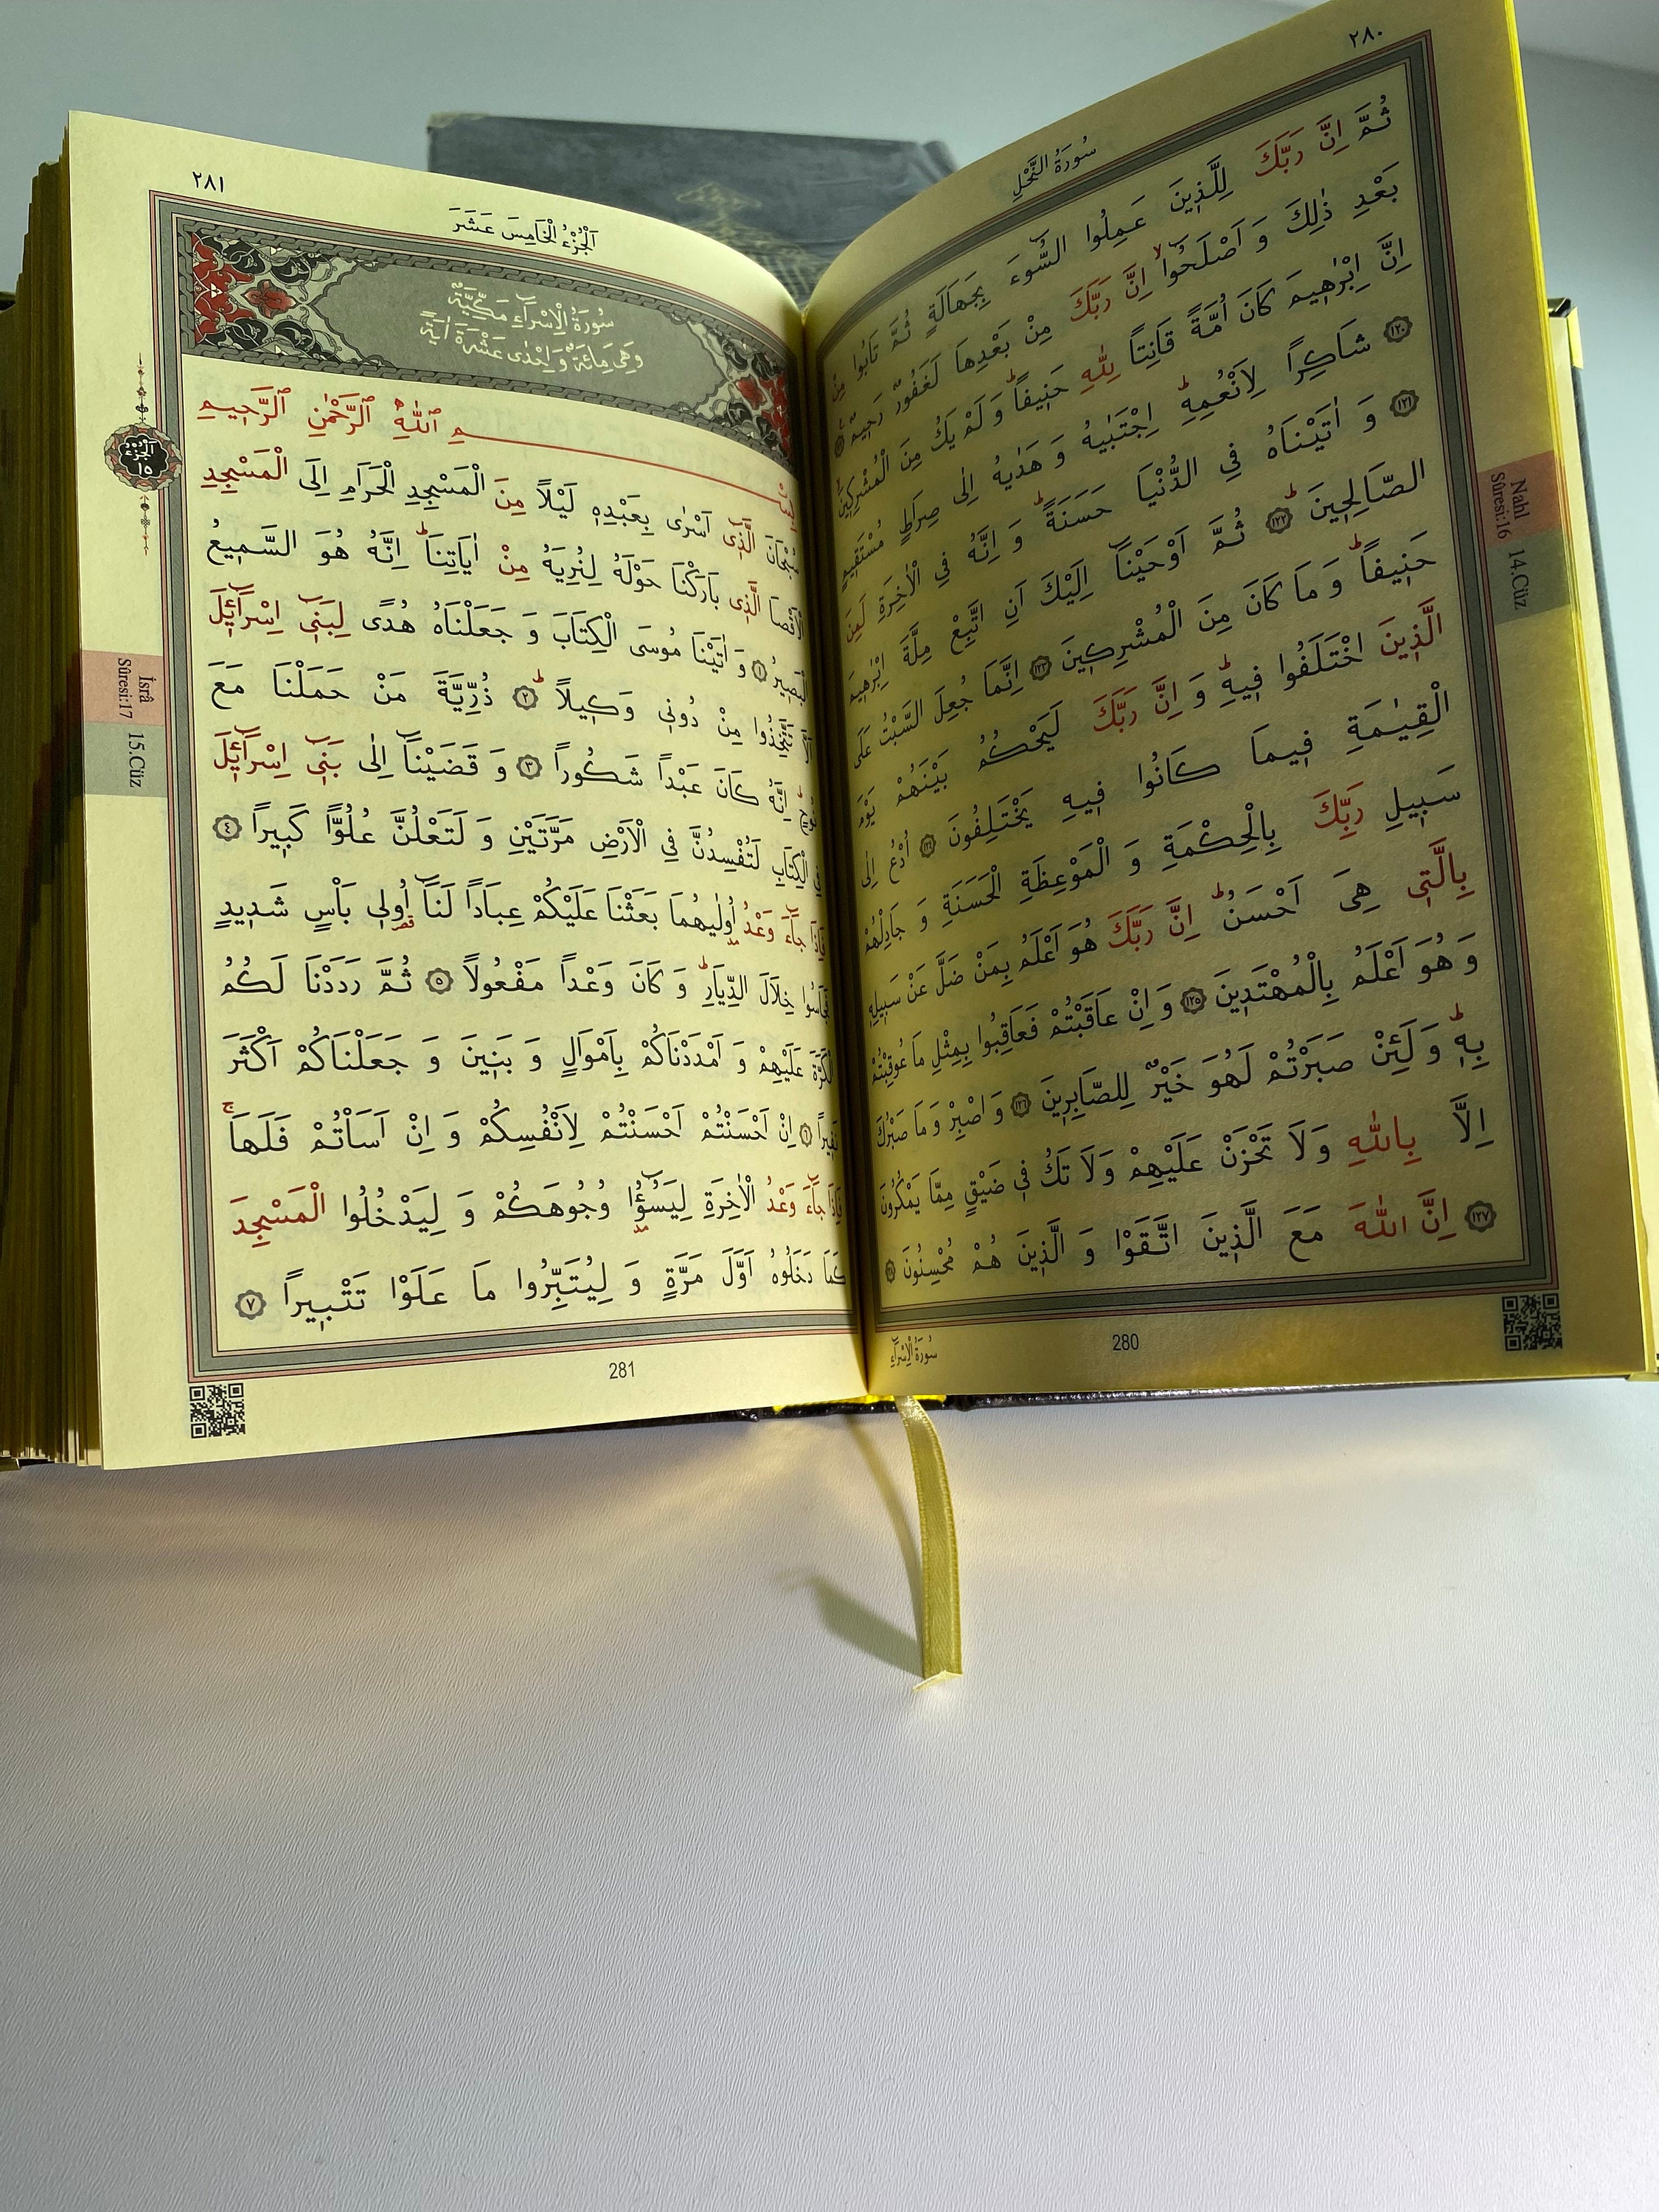 ٢٨٠
سُورَةُ النَّحْلِ
ثُمَّ اِنَّ رَبَّكَ لِلَّذ۪ينَ عَمِلُوا السُّٓوءَ بِجَهَالَةٍ ثُمَّ تَابُوا مِنْ
بَعْدِ ذٰلِكَ وَ اَصْلَحُٓواۙ اِنَّ رَبَّكَ مِنْ بَعْدِهَا لَغَفُورٌ رَح۪يمٌ
اِنَّ اِبْرٰه۪يمَ كَانَ اُمَّةً قَانِتاً لِلّٰهِ حَن۪يفاًۜ وَ لَمْ يَكُ مِنَ الْمُشْرِك۪ينَ
﴿١٢٠﴾ شَاكِراً لِاَنْعُمِه۪ۜ اِجْتَبٰيهُ وَ هَدٰيهُ اِلٰى صِرَاطٍ مُسْتَق۪يمٍ
﴿١٢١﴾ وَ اٰتَيْنَاهُ فِي الدُّنْيَا حَسَنَةًۜ وَ اِنَّهُ فِي الْاٰخِرَةِ لَمِنَ
الصَّالِح۪ينَۜ ﴿١٢٢﴾ ثُمَّ اَوْحَيْنَٓا اِلَيْكَ اَنِ اتَّبِعْ مِلَّةَ اِبْرٰه۪يمَ
حَن۪يفاًۜ وَ مَا كَانَ مِنَ الْمُشْرِك۪ينَ ﴿١٢٣﴾ اِنَّمَا جُعِلَ السَّبْتُ عَلَى
الَّذ۪ينَ اخْتَلَفُوا ف۪يهِۜ وَ اِنَّ رَبَّكَ لَيَحْكُمُ بَيْنَهُمْ يَوْمَ
الْقِيٰمَةِ ف۪يمَا كَانُوا ف۪يهِ يَخْتَلِفُونَ ﴿١٢٤﴾ اُدْعُ اِلٰى
سَب۪يلِ رَبِّكَ بِالْحِكْمَةِ وَ الْمَوْعِظَةِ الْحَسَنَةِ وَ جَادِلْهُمْ
بِالَّت۪ي هِيَ اَحْسَنُۜ اِنَّ رَبَّكَ هُوَ اَعْلَمُ بِمَنْ ضَلَّ عَنْ سَب۪يلِه۪
وَ هُوَ اَعْلَمُ بِالْمُهْتَد۪ينَ ﴿١٢٥﴾ وَ اِنْ عَاقَبْتُمْ فَعَاقِبُوا بِمِثْلِ مَا عُوقِبْتُمْ
بِه۪ۜ وَ لَئِنْ صَبَرْتُمْ لَهُوَ خَيْرٌ لِلصَّابِر۪ينَ ﴿١٢٦﴾ وَ اصْبِرْ وَ مَا صَبْرُكَ
اِلَّا بِاللّٰهِ وَلَا تَحْزَنْ عَلَيْهِمْ وَلَا تَكُ ف۪ي ضَيْقٍ مِمَّا يَمْكُرُونَ
﴿١٢٧﴾ اِنَّ اللّٰهَ مَعَ الَّذ۪ينَ اتَّقَوْا وَ الَّذ۪ينَ هُمْ مُحْسِنُونَ
Nahl
Sûresi:16
14.Cüz
280
سُورَةُ الْاِسْرَٓاءِ
٢٨١
اَلْجُزْءُ الْخَامِسَ عَشَرَ
سُورَةُ الْاِسْرَٓاءِ مَكِّيَّةٌ
وَهِيَ مِائَةٌ وَ اِحْدٰى عَشْرَةَ اٰيَةً
بِسْمِ اللّٰهِ الرَّحْمٰنِ الرَّح۪يمِ
سُبْحَانَ الَّذ۪ٓي اَسْرٰى بِعَبْدِه۪ لَيْلاً مِنَ الْمَسْجِدِ الْحَرَامِ اِلَى الْمَسْجِدِ
الْاَقْصَا الَّذ۪ي بَارَكْنَا حَوْلَهُ لِنُرِيَهُ مِنْ اٰيَاتِنَاۜ اِنَّهُ هُوَ السَّم۪يعُ
الْبَص۪يرُ ﴿١﴾ وَ اٰتَيْنَا مُوسَى الْكِتَابَ وَ جَعَلْنَاهُ هُدًى لِبَن۪ٓي اِسْرَٓائ۪لَ
اَلَّا تَتَّخِذُوا مِنْ دُون۪ي وَك۪يلاًۜ ﴿٢﴾ ذُرِّيَّةَ مَنْ حَمَلْنَا مَعَ
نُوحٍۜ اِنَّهُ كَانَ عَبْداً شَكُوراً ﴿٣﴾ وَ قَضَيْنَٓا اِلٰى بَن۪ٓي اِسْرَٓائ۪لَ
فِي الْكِتَابِ لَتُفْسِدُنَّ فِي الْاَرْضِ مَرَّتَيْنِ وَ لَتَعْلُنَّ عُلُوًّا كَب۪يراً ﴿٤﴾
فَاِذَا جَٓاءَ وَعْدُ اُو۫لٰيهُمَا بَعَثْنَا عَلَيْكُمْ عِبَاداً لَنَٓا اُو۬ل۪ي بَأْسٍ شَد۪يدٍ
فَجَاسُوا خِلَالَ الدِّيَارِۜ وَ كَانَ وَعْداً مَفْعُولاً ﴿٥﴾ ثُمَّ رَدَدْنَا لَكُمُ
الْكَرَّةَ عَلَيْهِمْ وَ اَمْدَدْنَاكُمْ بِاَمْوَالٍ وَ بَن۪ينَ وَ جَعَلْنَاكُمْ اَكْثَرَ
نَف۪يراً ﴿٦﴾ اِنْ اَحْسَنْتُمْ اَحْسَنْتُمْ لِاَنْفُسِكُمْ وَ اِنْ اَسَاْتُمْ فَلَهَاۚ
فَاِذَا جَٓاءَ وَعْدُ الْاٰخِرَةِ لِيَسُٓؤُ۫ا وُجُوهَكُمْ وَ لِيَدْخُلُوا الْمَسْجِدَ
كَمَا دَخَلُوهُ اَوَّلَ مَرَّةٍ وَ لِيُتَبِّرُوا مَا عَلَوْا تَتْب۪يراً ﴿٧﴾
اَلْجُزْءُ
١٥
İsrâ
Sûresi:17
15.Cüz
281